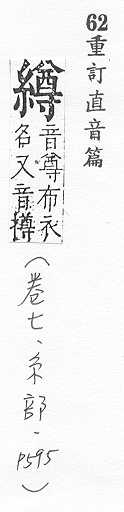 62重訂直音篇
繜音尊布衣
名又音撙
(卷七、糸部、P595)